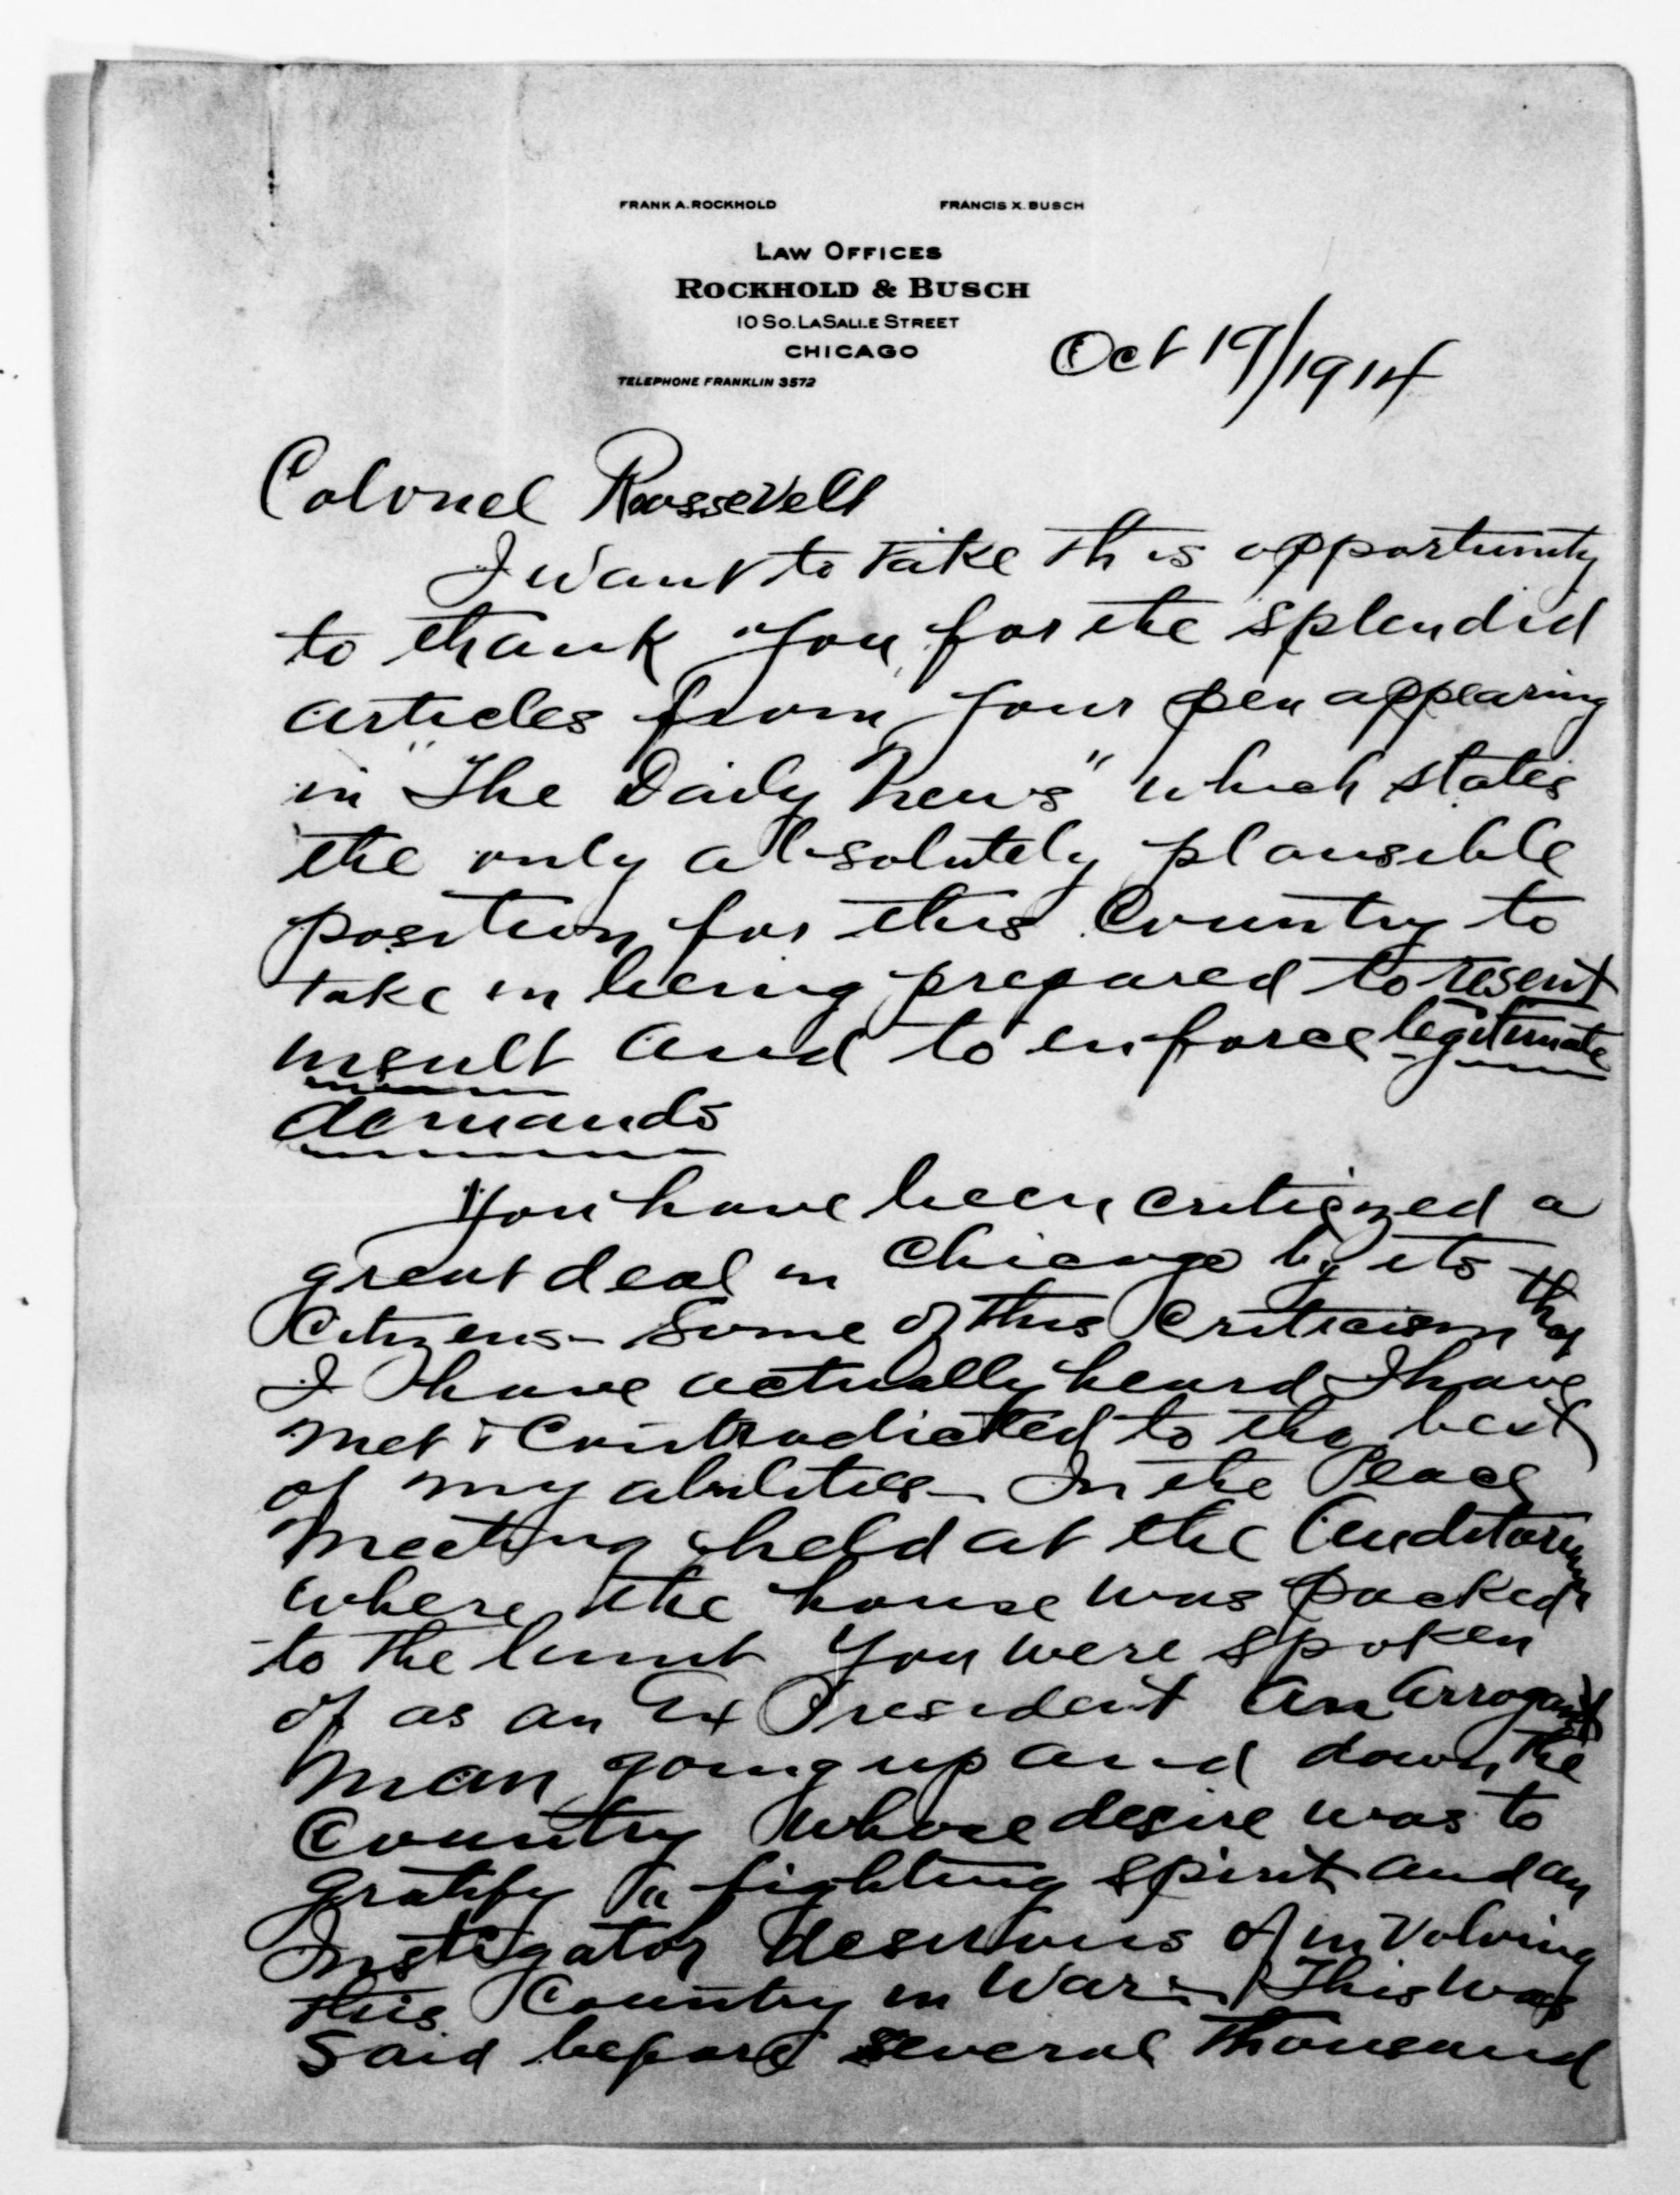 FRANK A. ROCKHOLD FRANCIS X. BUSCH
LAW OFFICES
ROCKHOLD & BUSCH
10 SO. LASALLE STREET
CHICAGO
TELEPHONE FRANKLIN 3572
Oct 19/1914
Colonel Roosevelt
I want to take this opportunity
to thank you for the splendid
articles from your pen appearing
in "The Daily News" which states
the only absolutely plausible
position for this Country to
take in being prepared to resent
insult and to enforce legitimate
demands
You have been criticized a
great deal in Chicago by its
Citizens - Some of this Criticism that
I have actually heard I have
met & Contradicted to the best
of my abilities - In the Peace
Meeting held at the Auditorium
where the house was packed
to the limit you were spoken
of as an Ex President an arrogant
man going up and down the
Country whose desire was to
gratify a fighting spirit and an
Instigator desirous of involving
this Country in War - This was
said before several thousand